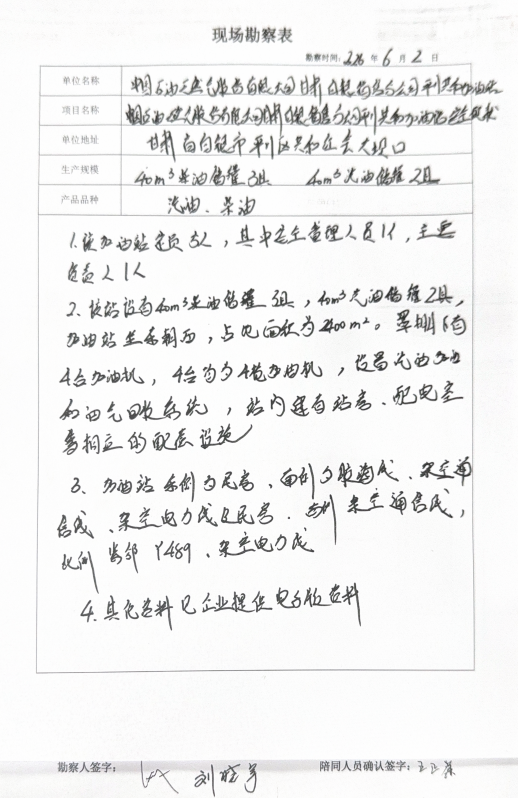 现场勘察表
勘察时间: 年 6 月 2 日
单位名称 中国石油天然气股份有限公司甘肃白银销售分公司平川共和加油站
项目名称 中国石油天然气股份有限公司甘肃白银销售分公司平川共和加油站
单位地址 甘肃省白银市平川区共和 大坝口
生产规模 40m³柴油储罐3具 40m³汽油储罐2具
产品品种 汽油、柴油
1.该加油站定员5人，其中安全管理人员1人，主要
负责人1人
2、该站设有40m³柴油储罐3具，40m³汽油储罐2具，
加油站坐东朝西，占地面积为2400m²。罩棚下有
4台加油机，4台均为4枪加油机，设置汽油加油
和油气回收系统，站内建有站房、配电室
等相应的配套设施
3、加油站东侧为民房，南侧为 、架空通
信线、架空电力线及民房、 架空通信线，
北侧 紧邻Y489、架空电力线
4.其他资料见企业提供电子版资料
勘察人签字: 刘 陪同人员确认签字: